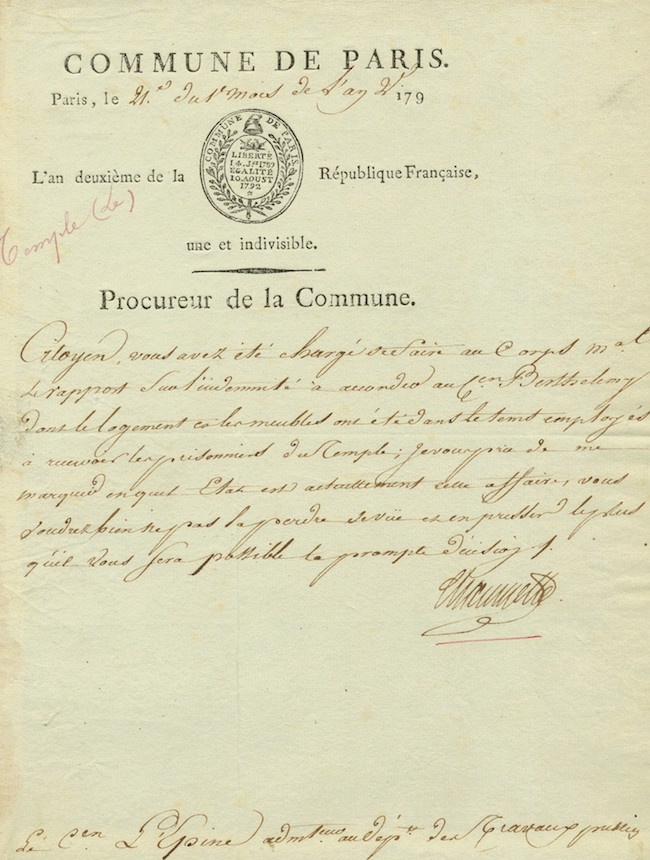 COMMUNE DE PARIS.
Paris, le 21.e du 1r mois de L'an 2e 179
COMMUNE DE PARIS
LIBERTÉ
14 Jet 1789
EGALITÉ
10 AOUST
1792
L'an deuxième de la République Française,
Temple (Le)
une et indivisible.
Procureur de la Commune.
Citoyen, vous avez été chargé de faire au Corps mal
Le rapport sur l'indemnité à accorder au Cen Berthelemy
dont le logement et les meubles ont été dans le tems employés
à recevoir les prisonniers du Temple; je vous prie de me
marquer en quel Etat est actuellement cette affaire, vous
voudrez bien ne pas la perdre de vüe et en presser le plus
qu'il vous sera possible la prompte décision.
Chaumette
Le Cen L'Epine admteur au dépt des Travaux publics